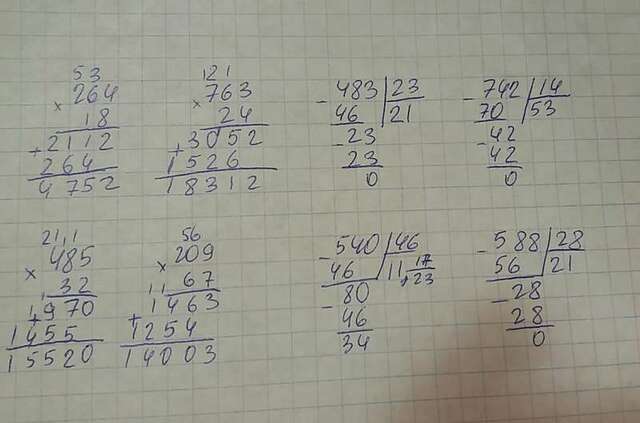 53
× 264
18
+ 2112
264
4752
121
× 763
24
+ 3052
1526
18312
- 483 23
46 21
- 23
23
0
- 742 14
70 53
- 42
42
0
21,1
× 485
32
+ 970
1455
15520
56
× 209
67
11
+ 1463
1254
14003
- 540 46
46 11 17/23
- 80
46
34
- 588 28
56 21
- 28
28
0